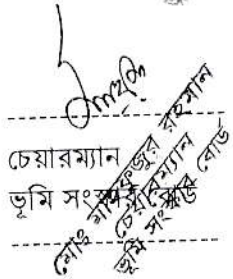 চেয়ারম্যান
ভূমি সংস্কার বোর্ড
মোঃ মাহফুজুর রহমান
চেয়ারম্যান
ভূমি সংস্কার বোর্ড